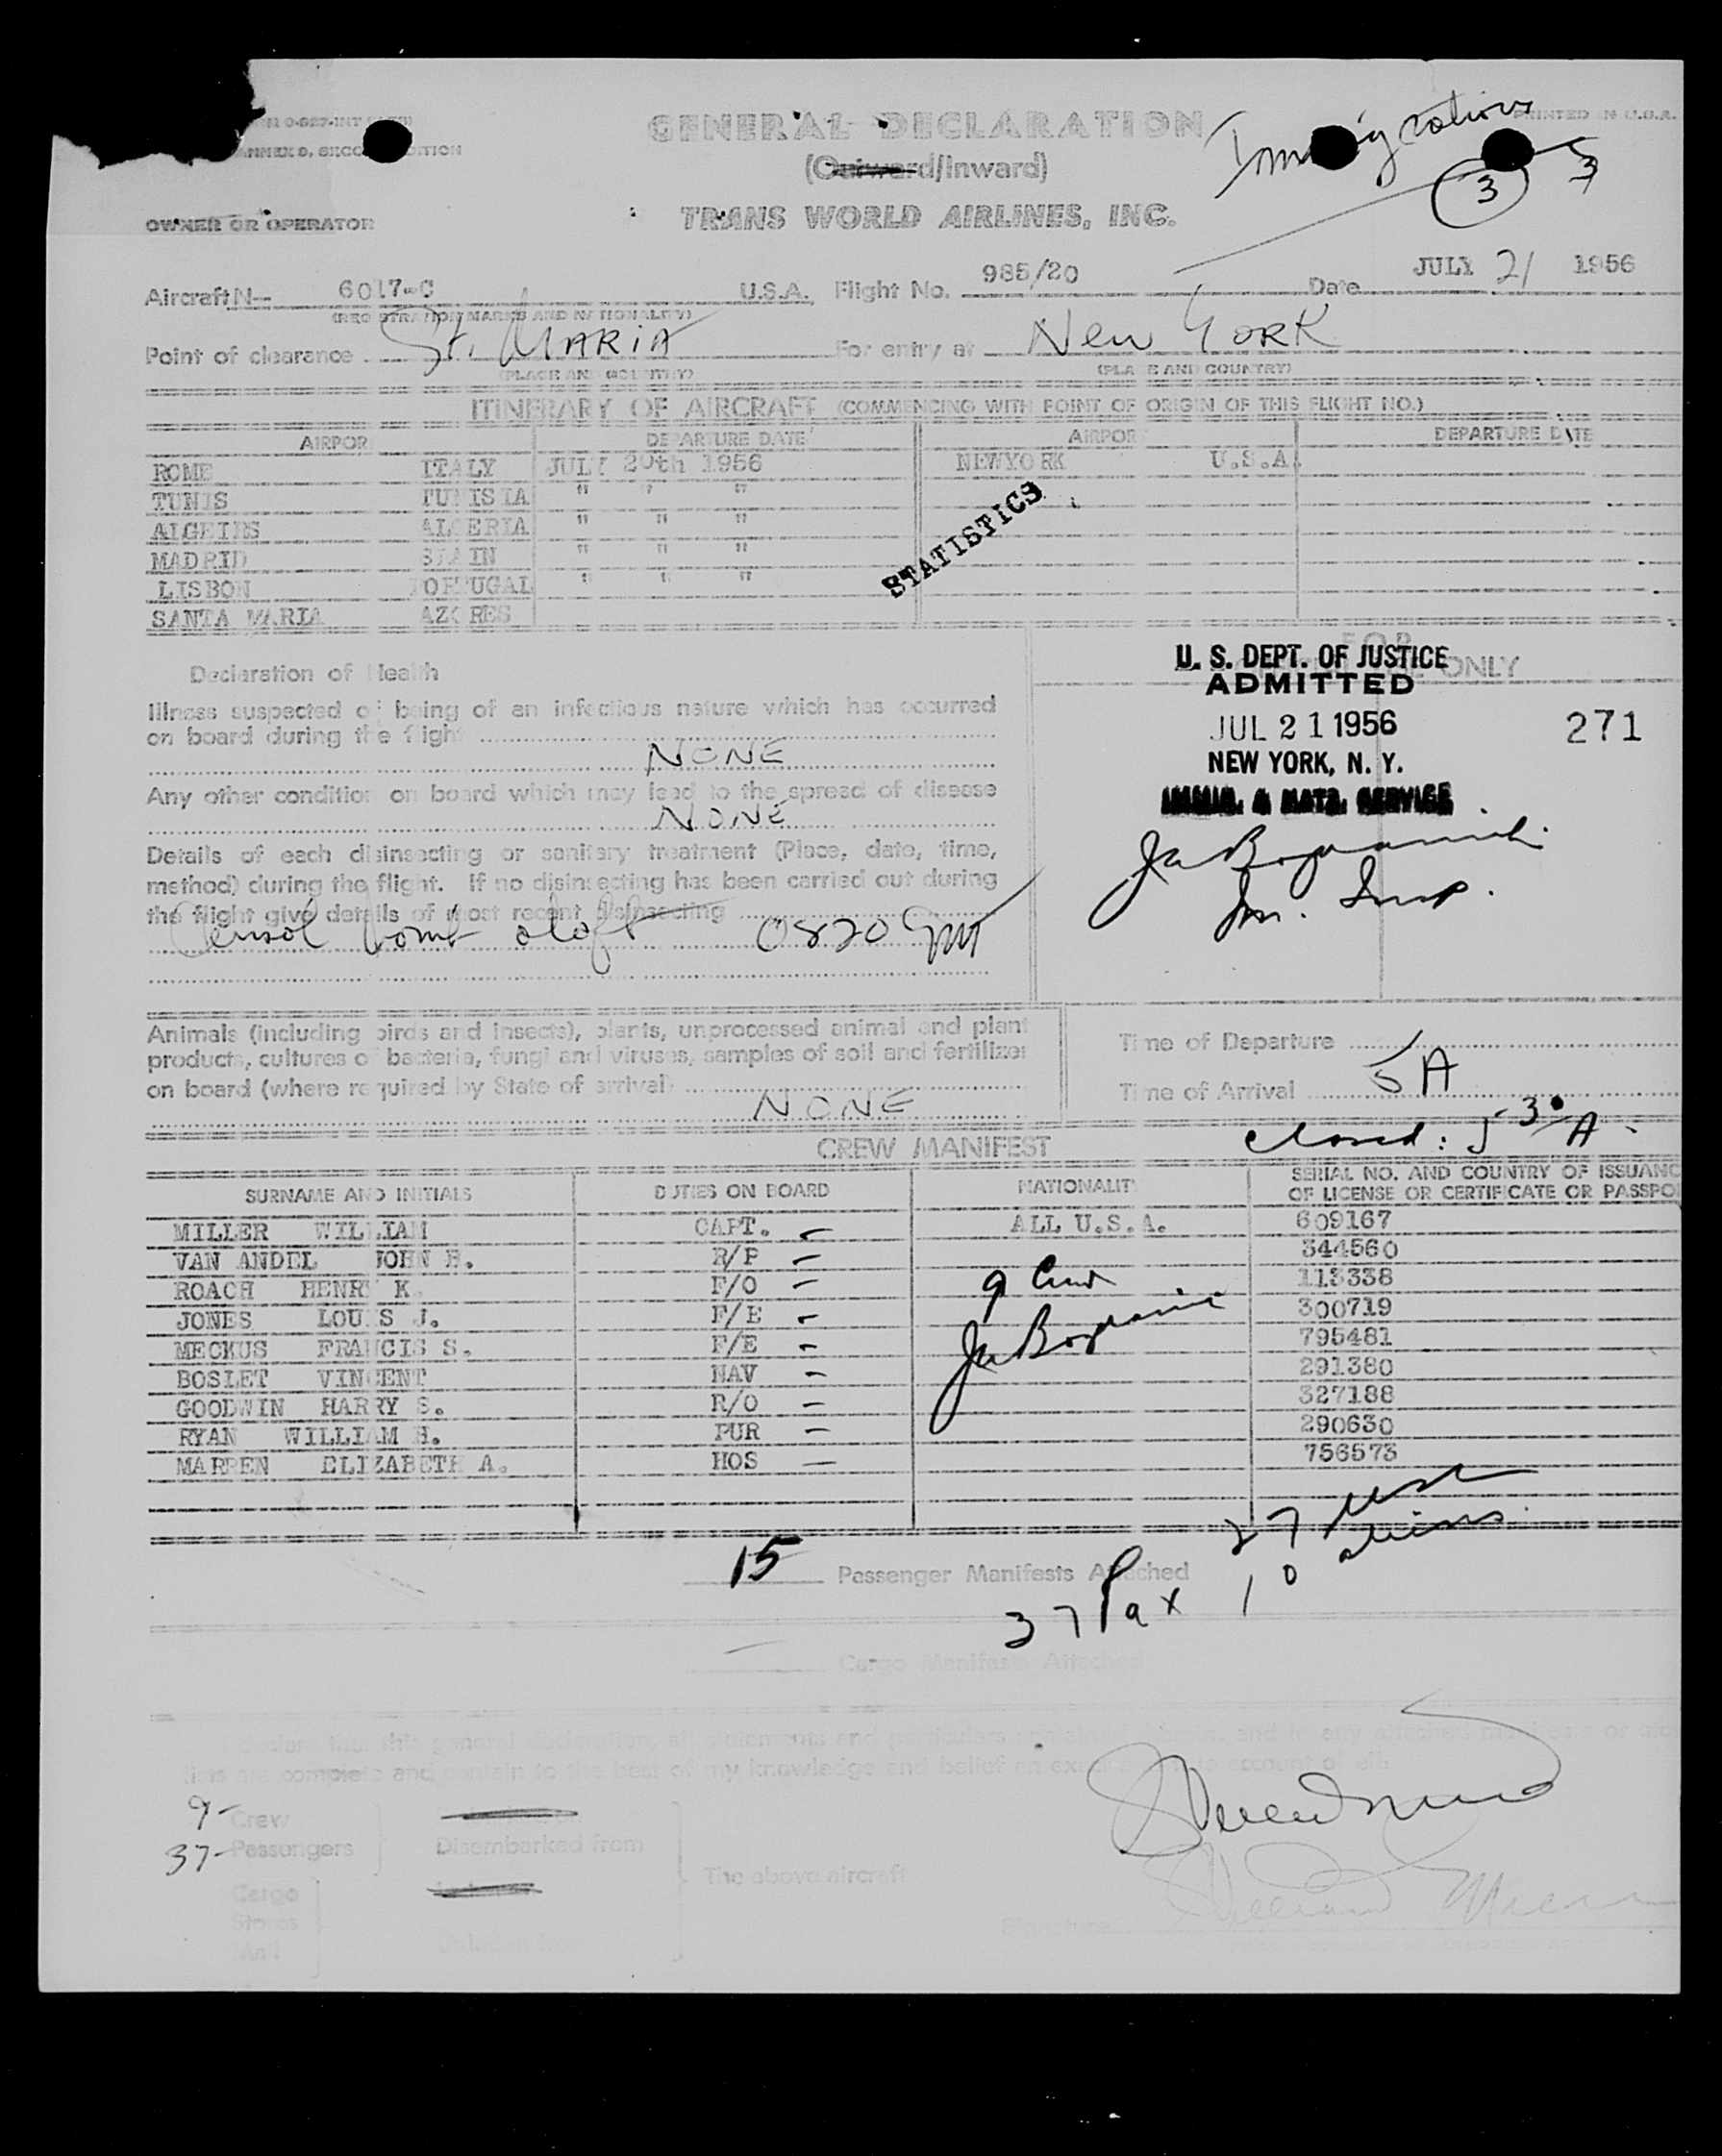 ANNEX 9, SECO ITION
PRINTED IN U.S.A.
GENERAL DECLARATION
Immigration
(Outward/Inward)
3 3
OWNER OR OPERATOR
TRANS WORLD AIRLINES, INC.
Aircraft N- 6017-C U.S.A. Flight No. 985/20 Date JULY 21 1956
(REGISTRATION MARKS AND NATIONALITY)
Point of clearance St. MARIA For entry at New YORK
(PLACE AND COUNTRY) (PLACE AND COUNTRY)
ITINERARY OF AIRCRAFT (COMMENCING WITH POINT OF ORIGIN OF THIS FLIGHT NO.)
AIRPORT DEPARTURE DATE AIRPORT DEPARTURE DATE
ROME ITALY JULY 20th 1956 NEWYORK U.S.A.
TUNIS TUNISIA " " "
ALGEIRS ALGERIA " " "
MADRID SPAIN " " "
LISBON PORTUGAL " " "
SANTA MARIA AZORES
STATISTICS
FOR
ONLY
U. S. DEPT. OF JUSTICE
ADMITTED
JUL 21 1956
271
NEW YORK, N. Y.
IMMIG. & NATZ. SERVICE
Im. Insp.
Declaration of Health
Illness suspected of being of an infectious nature which has occurred
on board during the flight
NONE
Any other condition on board which may lead to the spread of disease
NONE
Details of each disinsecting or sanitary treatment (Place, date, time,
method) during the flight. If no disinsecting has been carried out during
the flight give details of most recent disinsecting
Aerosol bomb aloft 0820 GMT
Animals (including birds and insects), plants, unprocessed animal and plant
products, cultures of bacteria, fungi and viruses, samples of soil and fertilizer
on board (where required by State of arrival)
NONE
Time of Departure
Time of Arrival 5A
closed: 5 30/A.
CREW MANIFEST
SURNAME AND INITIALS DUTIES ON BOARD NATIONALITY SERIAL NO. AND COUNTRY OF ISSUANC
OF LICENSE OR CERTIFICATE OR PASSPO
MILLER WILLIAM CAPT. - ALL U.S.A. 609167
VAN ANDEL JOHN H. R/P - 344560
ROACH HENRY K. F/O - 9 Crew 113338
JONES LOUIS J. F/E - 300719
MECKUS FRANCIS S. F/E - 795481
BOSLET VINCENT NAV - 291380
GOODWIN HARRY S. R/O - 327188
RYAN WILLIAM H. PUR - 290630
MARREN ELIZABETH A. HOS - 756573
27 USC
15 Passenger Manifests Attached
37 Pax 10 aliens
Cargo Manifests Attached
I declare that this general declaration, all statements and particulars contained therein, and in any attached manifests or
are complete and contain to the best of my knowledge and belief an exact account of all:
9- Crew
37- Passengers
Disembarked from
The above aircraft
Cargo
Stores
Mail
Unladen from
Signature William Miller